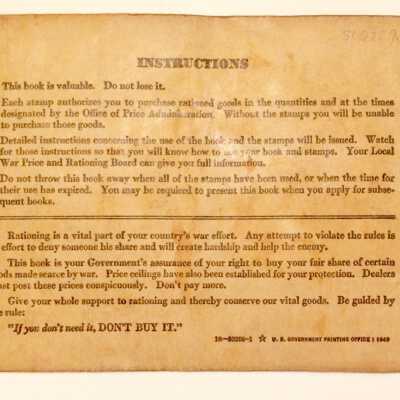 INSTRUCTIONS
This book is valuable. Do not lose it.
Each stamp authorizes you to purchase rationed goods in the quantities and at the times
designated by the Office of Price Administration. Without the stamps you will be unable
to purchase those goods.
Detailed instructions concerning the use of the book and the stamps will be issued. Watch
for those instructions so that you will know how to use your book and stamps. Your Local
War Price and Rationing Board can give you full information.
Do not throw this book away when all of the stamps have been used, or when the time for
their use has expired. You may be required to present this book when you apply for subse-
quent books.
Rationing is a vital part of your country's war effort. Any attempt to violate the rules is
effort to deny someone his share and will create hardship and help the enemy.
This book is your Government's assurance of your right to buy your fair share of certain
ods made scarce by war. Price ceilings have also been established for your protection. Dealers
ust post these prices conspicuously. Don't pay more.
Give your whole support to rationing and thereby conserve our vital goods. Be guided by
e rule:
"If you don't need it, DON'T BUY IT."
☆ U. S. GOVERNMENT PRINTING OFFICE : 1943